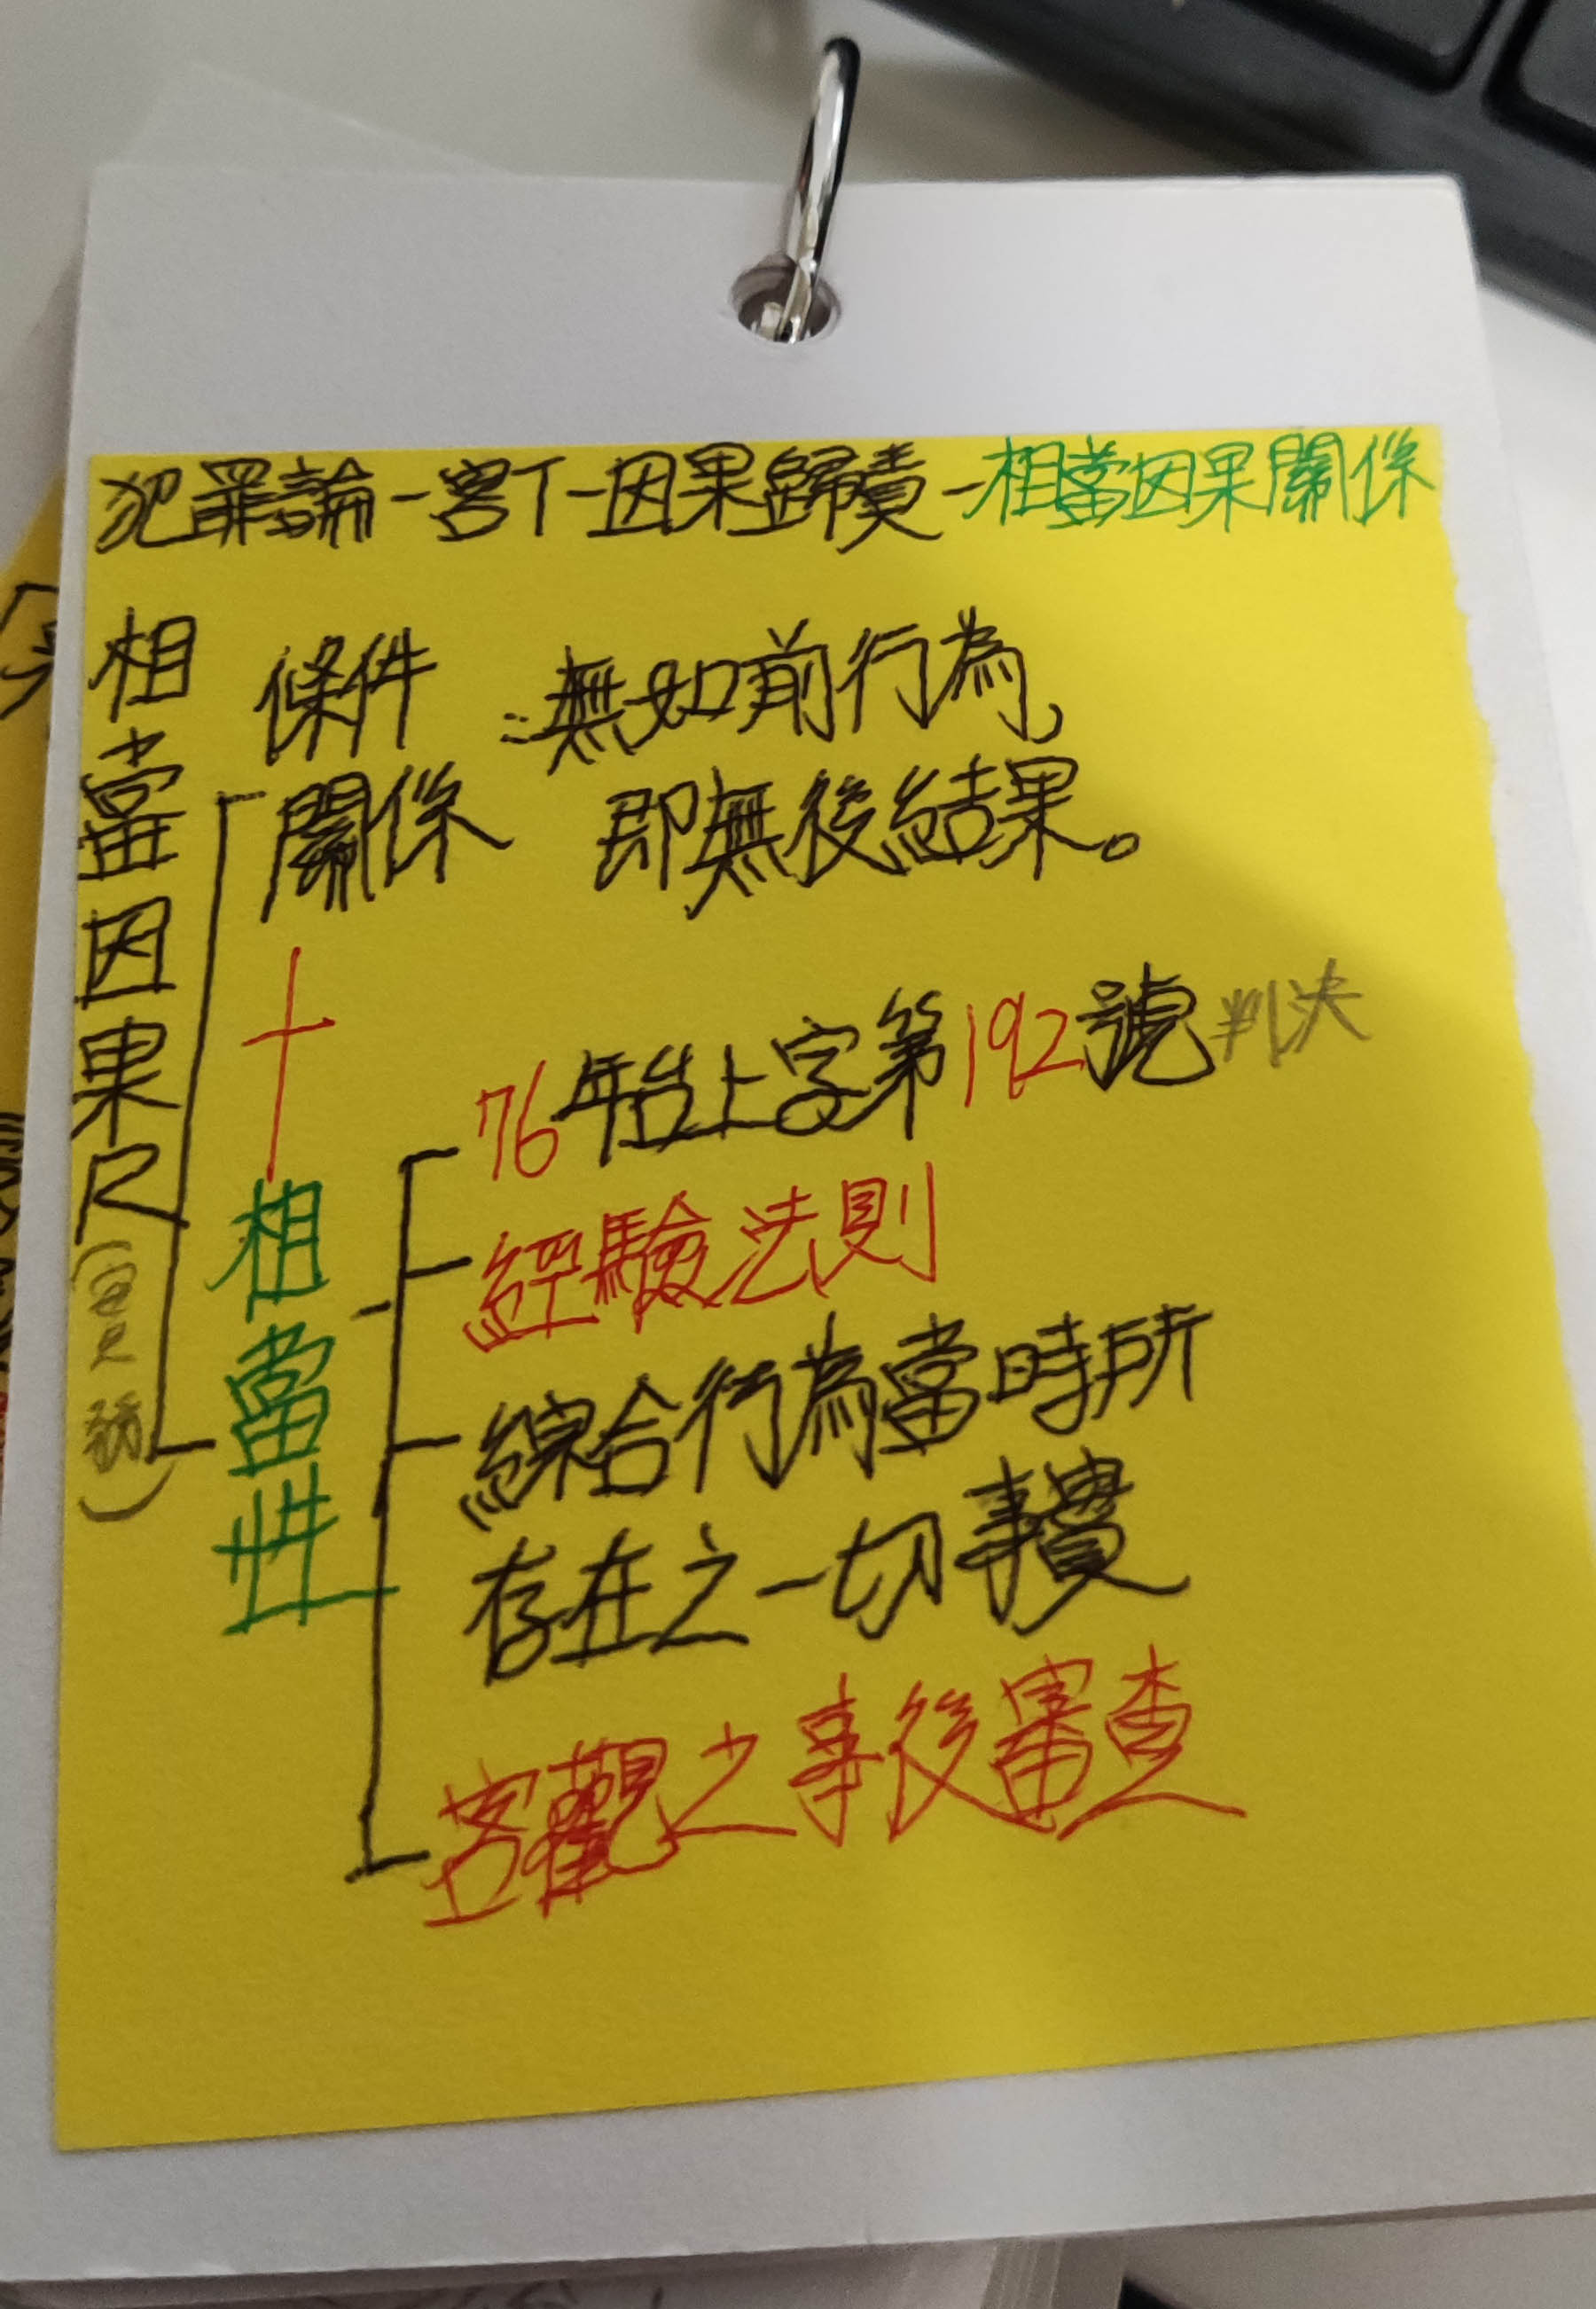 犯罪論-客T-因果歸責-相當因果關係
相當因果R(實務)
條件關係
:無如前行為,
即無後結果。
+
相當性
76年台上字第192號判決
經驗法則
綜合行為當時所
存在之一切事實
客觀之事後審查